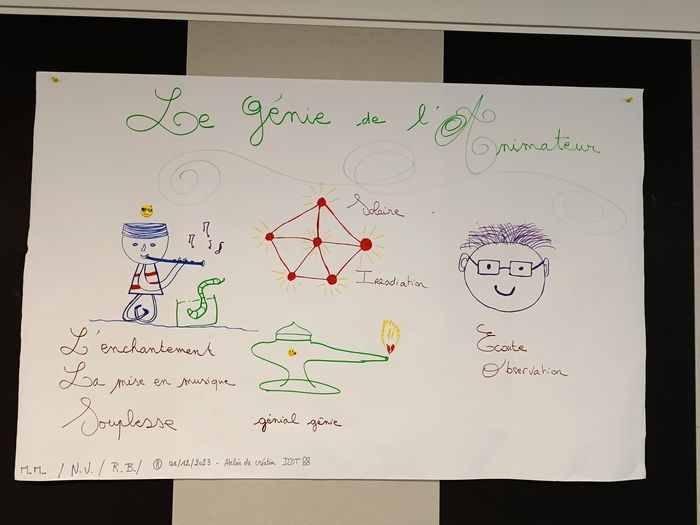 Le génie de l'Animateur
Solaire
Irradiation
L'enchantement
La mise en musique
Souplesse
génial génie
Ecoute
Observation
M.M. / N.V. / R.B. / ® 01/12/2023 - Atelier de création